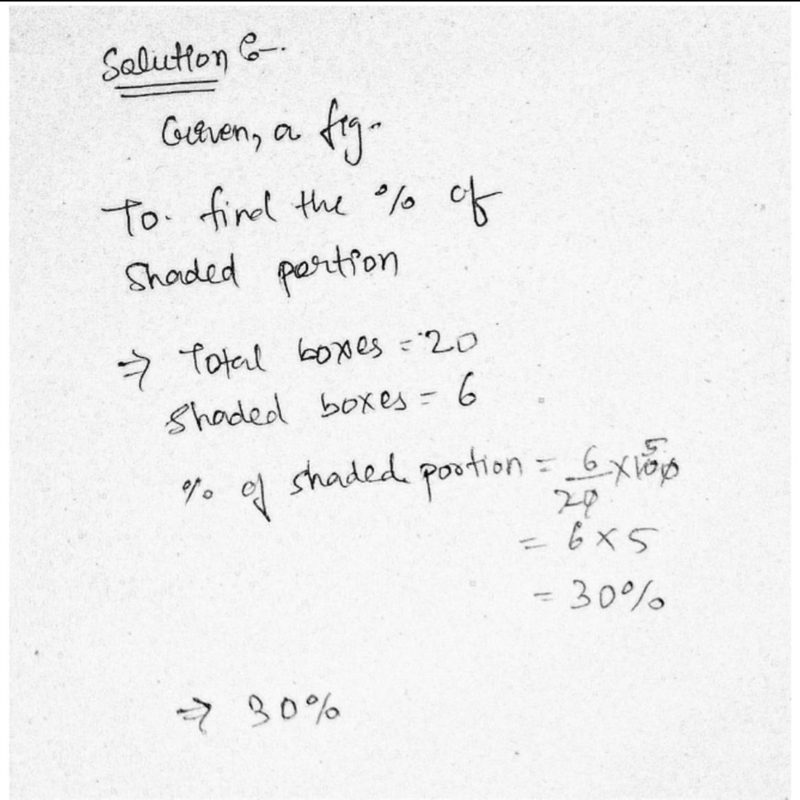 Solution :-
Given, a fig.
To find the % of
shaded portion
⇒ Total boxes = 20
shaded boxes = 6
% of shaded portion = 6/20 × 100 5
= 6 × 5
= 30%
⇒ 30%